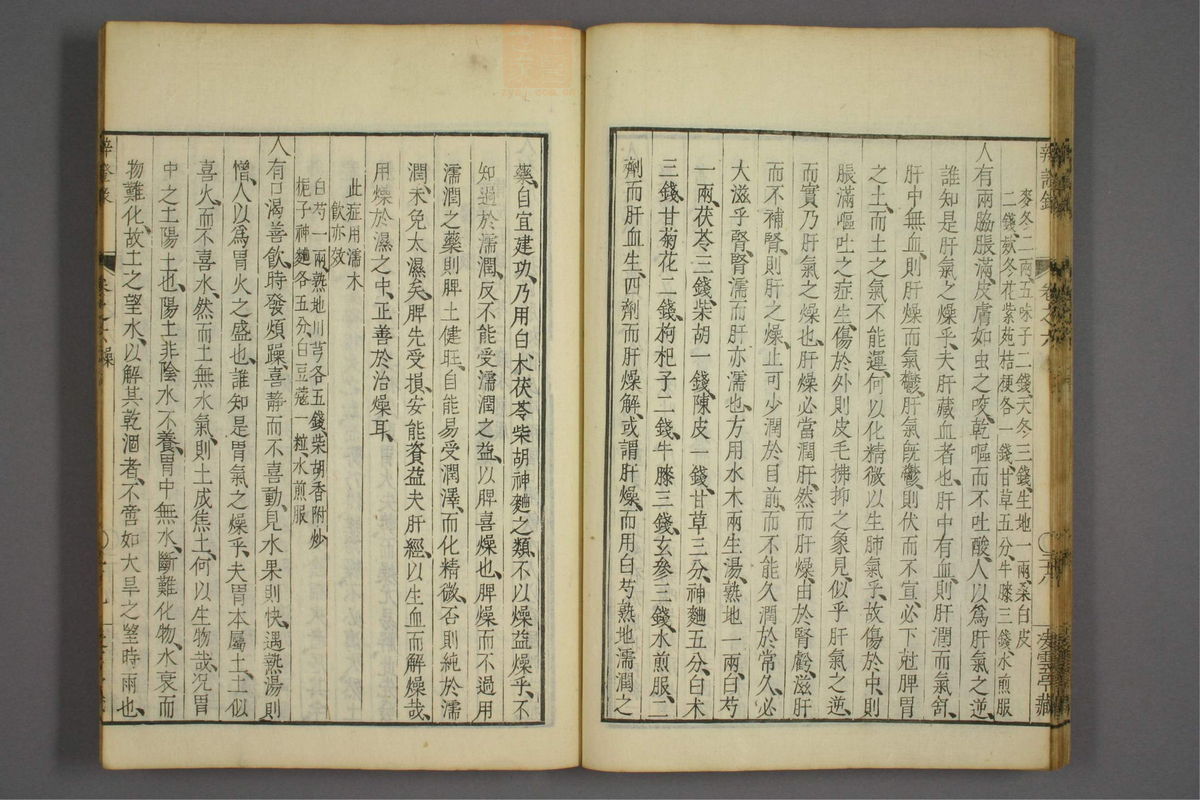 辨證錄
卷之六
二十八
凌雲亭藏
麥冬二兩五味子二錢天冬三錢生地一兩桑白皮
二錢欵冬花紫菀桔梗各一錢甘草五分牛膝三錢水煎服
人有兩脇脹滿皮膚如虫之咬乾嘔而不吐酸人以爲肝氣之逆
誰知是肝氣之燥乎夫肝藏血者也肝中有血則肝潤而氣舒
肝中無血則肝燥而氣鬱肝氣旣鬱則伏而不宣必下尅脾胃
之土而土之氣不能運何以化精微以生肺氣乎故傷於中則
脹滿嘔吐之症生傷於外則皮毛拂抑之象見似乎肝氣之逆
而實乃肝氣之燥也肝燥必當潤肝然而肝燥由於腎虧滋肝
而不補腎則肝之燥止可少潤於目前而不能久潤於常久必
大滋乎腎腎濡而肝亦濡也方用水木兩生湯熟地一兩白芍
一兩茯苓三錢柴胡一錢陳皮一錢甘草三分神麯五分白术
三錢甘菊花二錢枸杞子二錢牛膝三錢玄參三錢水煎服二
劑而肝血生四劑而肝燥解或謂肝燥而用白芍熟地濡潤之
藥自宜建功乃用白术茯苓柴胡神麯之類不以燥益燥乎不
知過於濡潤反不能受濡潤之益以脾喜燥也脾燥而不過用
濡潤之藥則脾土健旺自能易受潤澤而化精微否則純於濡
潤未免太濕矣脾先受損安能資益夫肝經以生血而解燥哉
用燥於濕之中正善於治燥耳
此症用濡木
飲亦效
白芍一兩熟地川芎各五錢柴胡香附炒
梔子神麯各五分白豆蔻一粒水煎服
人有口渴善飲時發煩躁喜靜而不喜動見水果則快遇熱湯則
憎人以爲胃火之盛也誰知是胃氣之燥乎夫胃本屬土土似
喜火而不喜水然而土無水氣則土成焦土何以生物哉况胃
中之土陽土也陽土非陰水不養胃中無水斷難化物水衰而
物難化故土之望水以解其乾涸者不啻如大旱之望時雨也